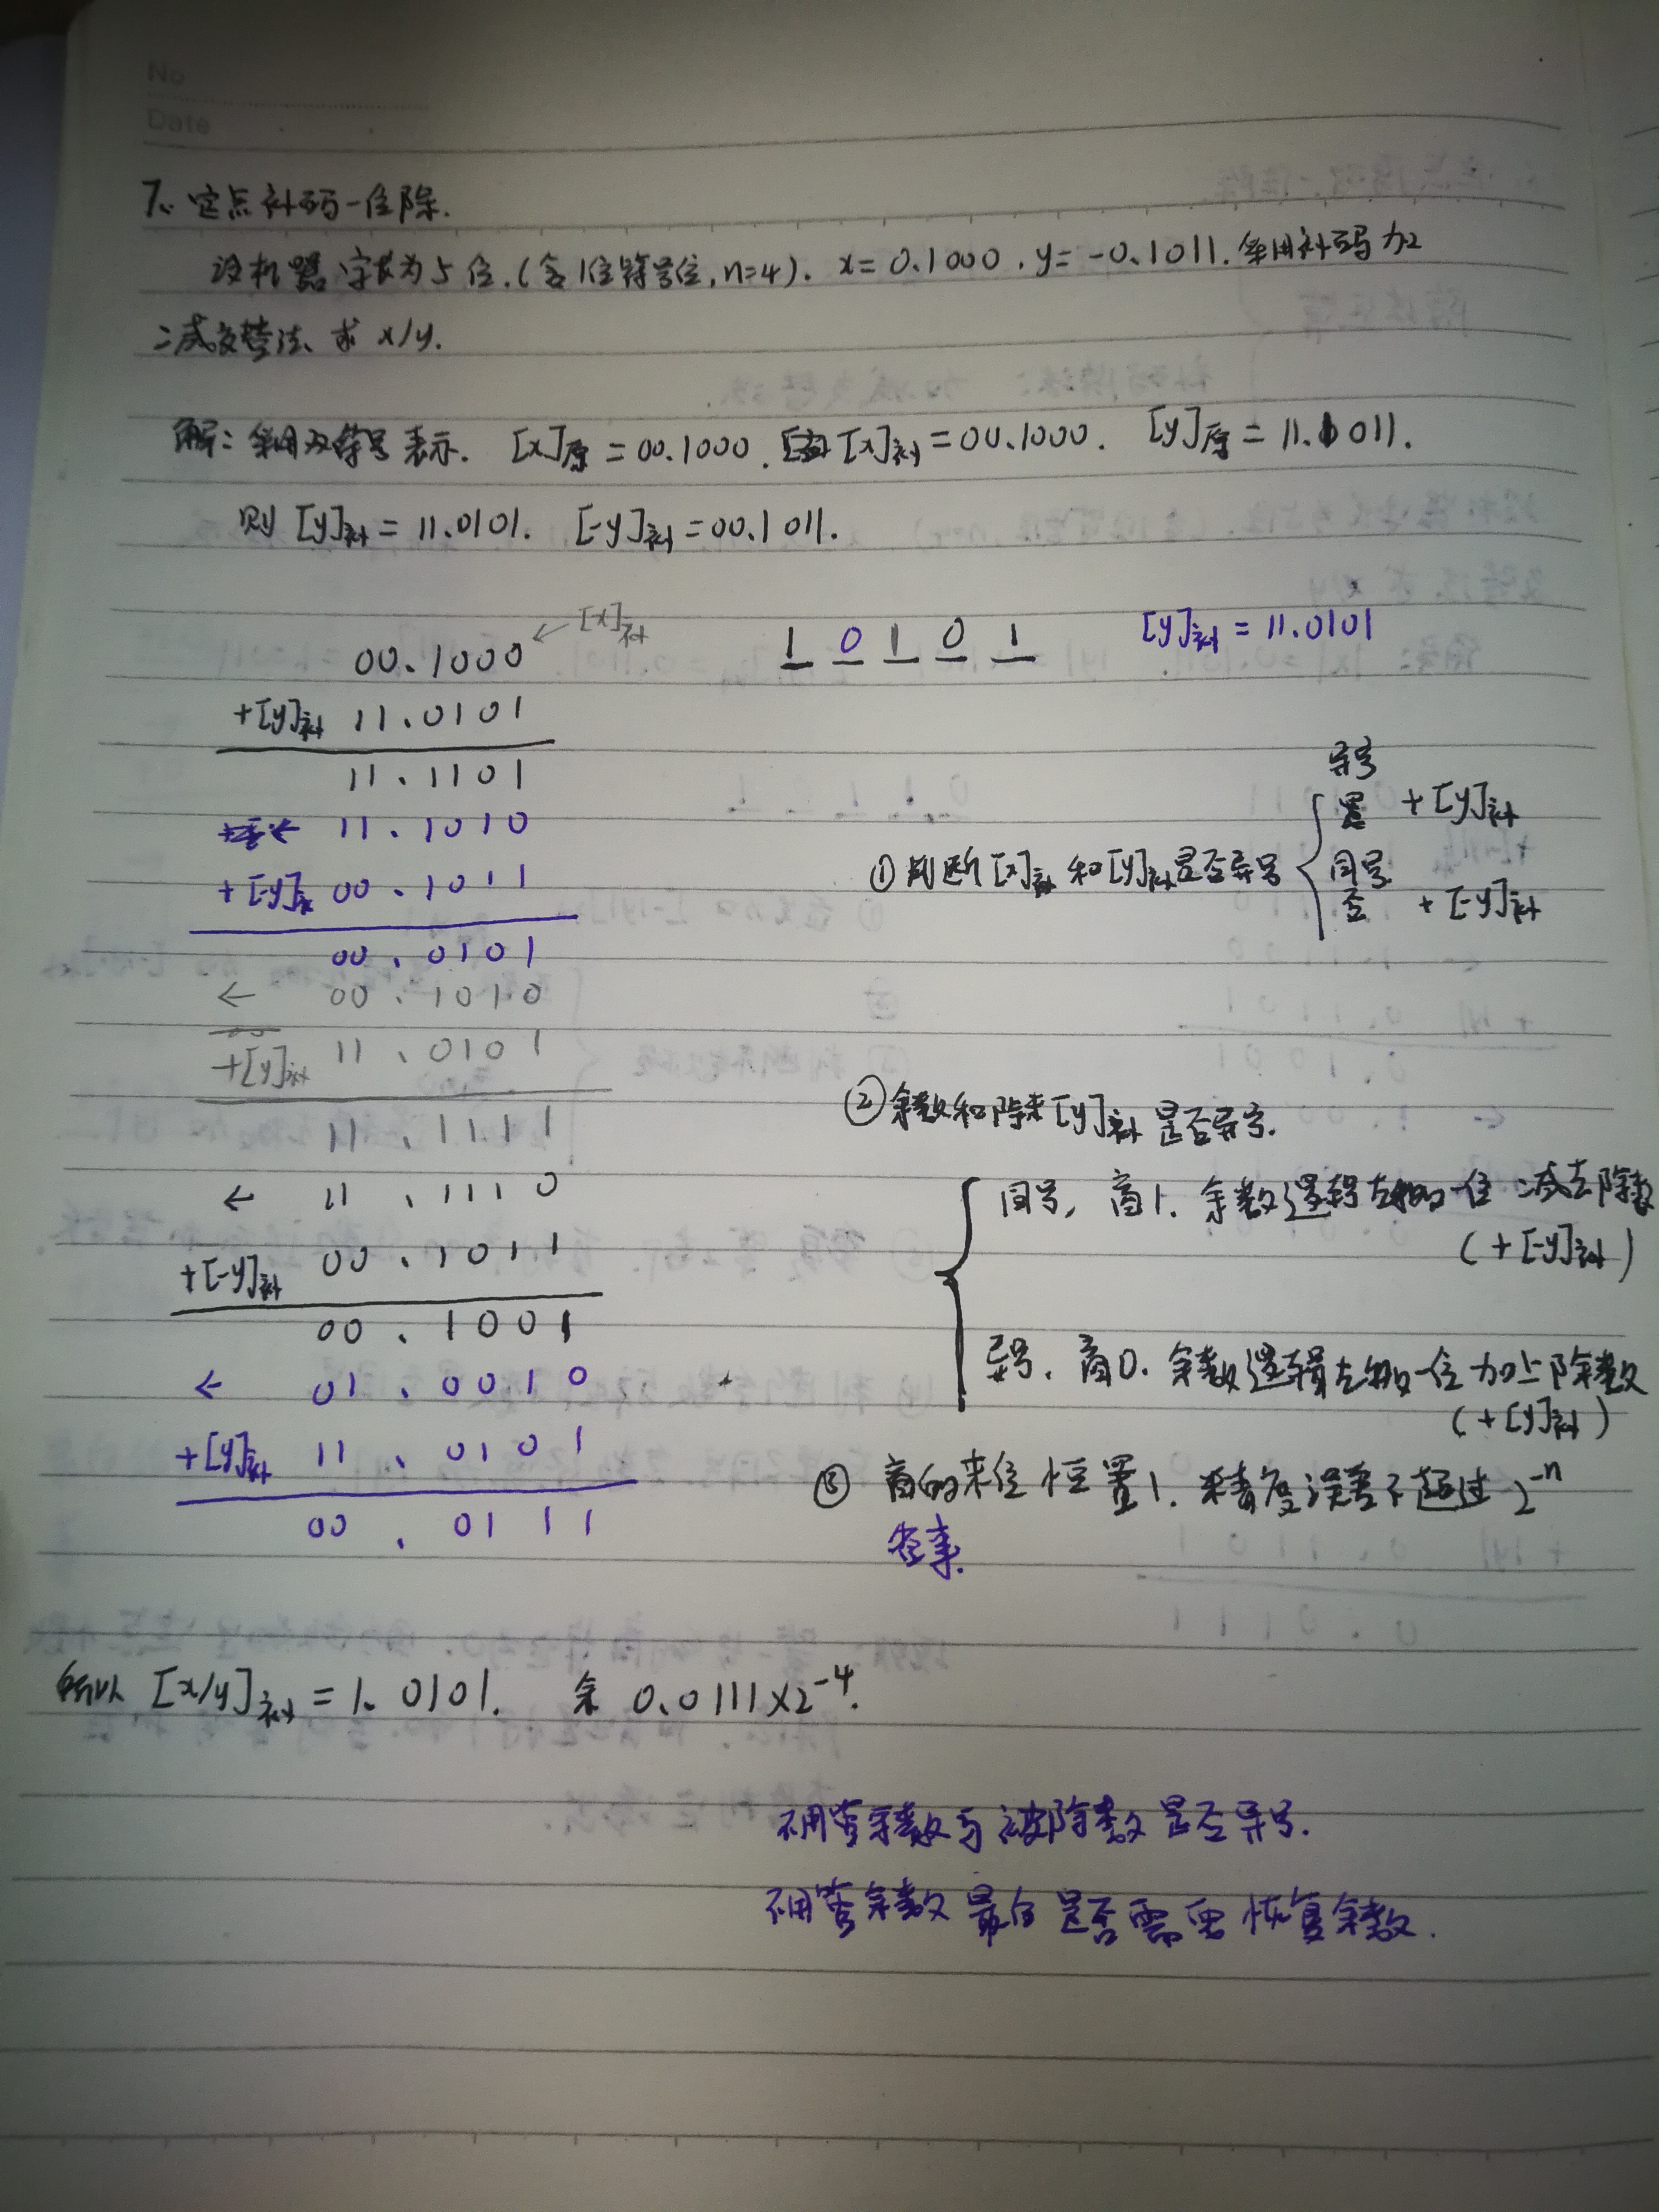 No
Date
7、定点补码一位除.
设机器字长为5位.(含1位符号位,n=4). x=0.1000, y=-0.1011. 采用补码加
减交替法、求 x/y.
解: 采用双符号表示. [x]原=00.1000. [x]补=00.1000. [y]原=11.1011.
则 [y]补=11.0101. [-y]补=00.1011.
00.1000 ← [x]补
+[y]补 11.0101
11.1101
← 11.1010
+[-y]补 00.1011
00.0101
← 00.1010
+[y]补 11.0101
11.1111
← 11.1110
+[-y]补 00.1011
00.1001
← 01.0010
+[y]补 11.0101
00.0111
1 0 1 0 1
[y]补=11.0101
①判断[x]补和[y]补是否异号
异号 +[y]补
同号 +[-y]补
否
②余数和除来[y]补是否异号.
同号, 商1. 余数逻辑左移一位 减去除数
(+[-y]补)
异号. 商0. 余数逻辑左移一位 加上除数
(+[y]补)
③ 商的末位恒置1. 精度误差不超过 2⁻ⁿ
所以 [x/y]补=1.0101. 余 0.0111×2⁻⁴.
不用管余数与被除数是否异号.
不用管余数最后是否需要恢复余数.